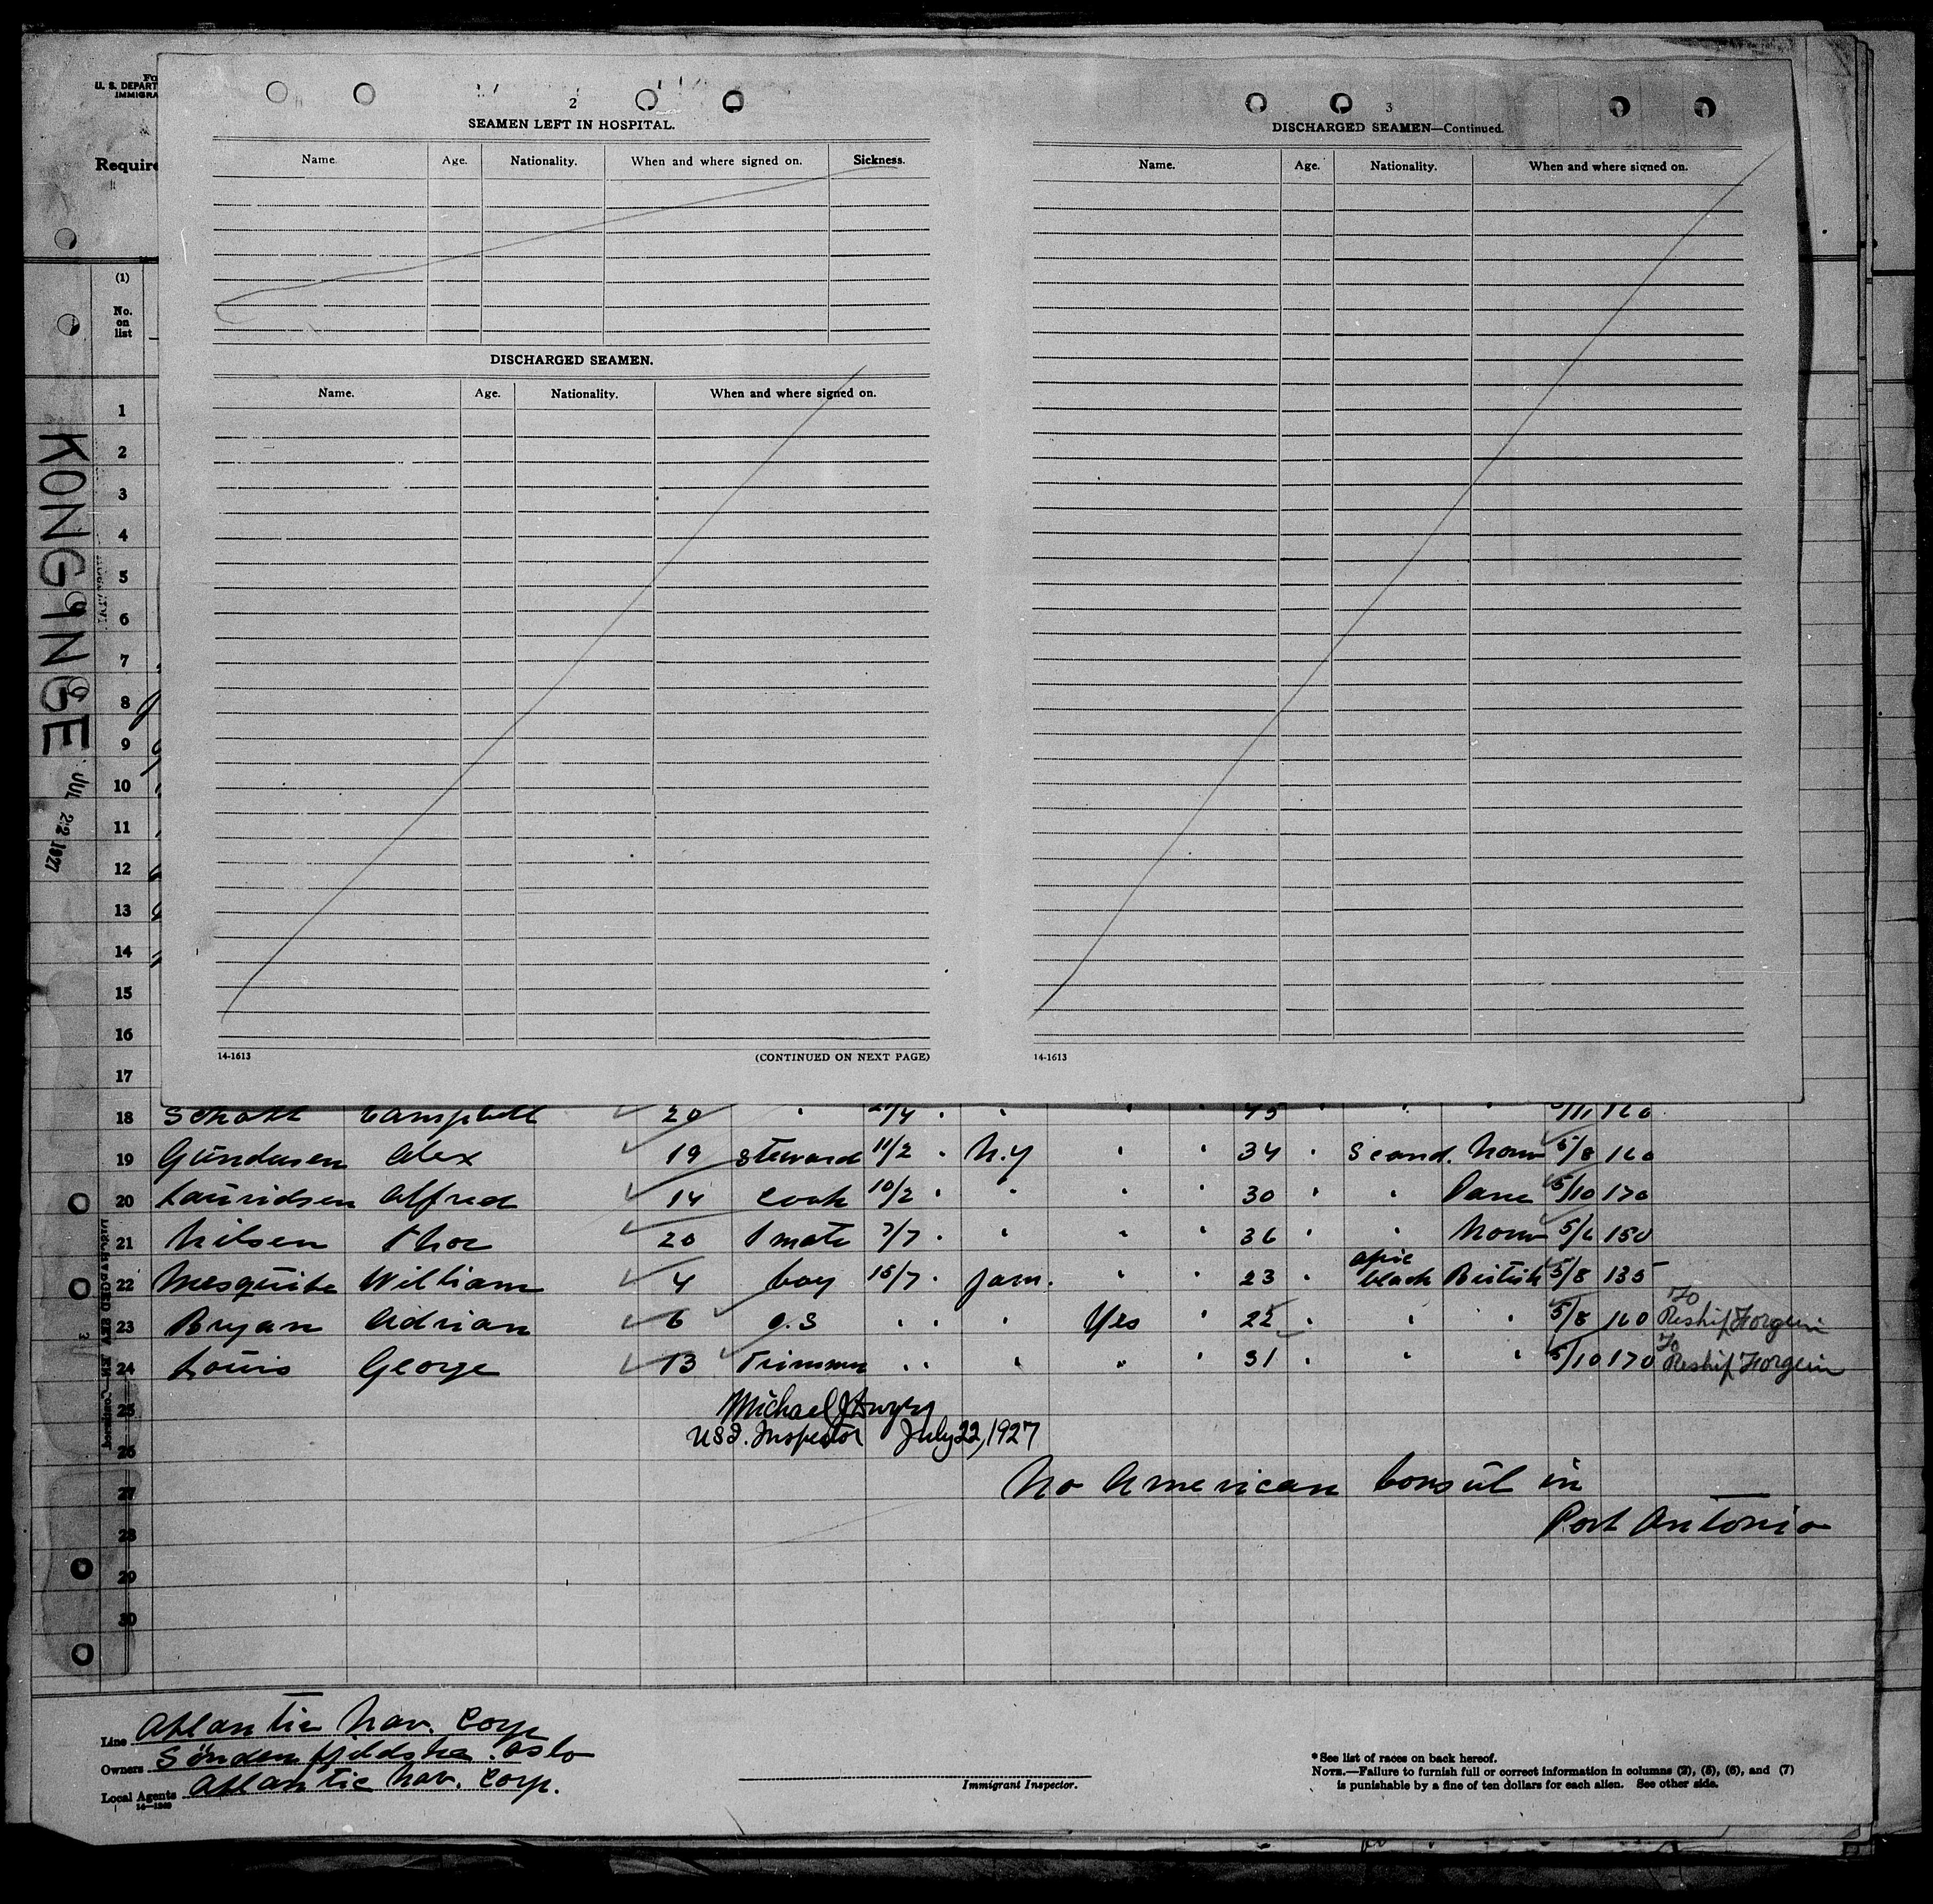 Fo
U. S. DEPART
IMMIGRA
Require
(1)
No.
on
list
KONG INGE
JUL 22 1927
2
SEAMEN LEFT IN HOSPITAL.
Name. Age. Nationality. When and where signed on. Sickness.
DISCHARGED SEAMEN.
Name. Age. Nationality. When and where signed on.
14-1613 (CONTINUED ON NEXT PAGE)
3
DISCHARGED SEAMEN—Continued.
Name. Age. Nationality. When and where signed on.
14-1613
1
2
3
4
5
6
7
8
9
10
11
12
13
14
15
16
17
18 Campbell 20 " 45 " " "
19 Gundersen Alex 19 steward 11/2 " N.Y " " 34 " Scand. Norw 5/8 160
20 Lauridsen Alfred 14 cook 10/2 " " " " 30 " " Dane 5/10 170
21 Nilsen Thor 20 1 mate 7/7 " " " " 36 " " Norw 5/6 150
22 Mesquita William 4 boy 15/7 " Jam. " " 23 " afric black British 5/8 135
23 Bryan Adrian 6 o.s " " " Yes " 22 " " " 5/8 160 To Reship Forgein
24 Louis George 13 Trimmer " " " " " 31 " " " 5/10 170 To Reship Forgein
25 Michael J Dwyer
26 U S I. Inspector July 22, 1927
27 No American Consul in
28 Port Antonio
29
30
Line Atlantic Nav. Corp
Owners Söndenfjeldske. Oslo
Local Agents Atlantic Nav. Corp.
14—1240
Immigrant Inspector.
*See list of races on back hereof.
NOTE.—Failure to furnish full or correct information in columns (2), (5), (6), and (7)
is punishable by a fine of ten dollars for each alien. See other side.